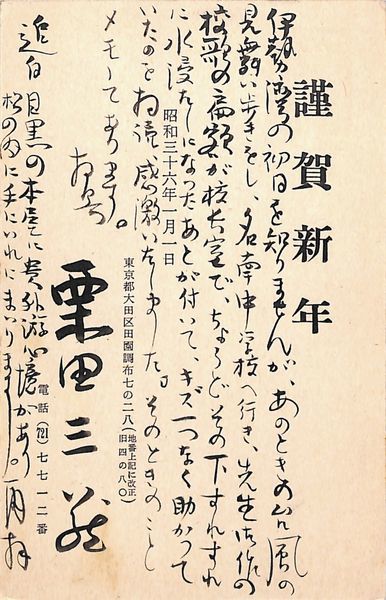 謹賀新年
伊勢湾の初日を知りませんが、あのときの台風の
見舞い歩きをし、名南中学校へ行き、先生御作の
校歌の扁額が校長室で、ちょうどその下すれすれ
に水浸たしになったあとが付いて、キズ一つなく助かって
いたのを拝読感激いたしました。そのときのこと
メモしてあります。
昭和三十六年一月一日
東京都大田区田園調布七の二八(地番上記に改正 旧四の八〇)
栗田三
電話(721)七七一二番
追白 目黒の本屋に貴外游心境があり
松の内に手にいれにまいります。